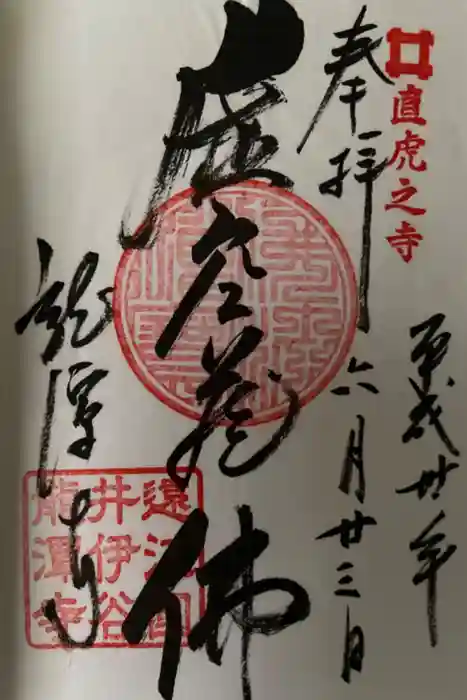 直虎之寺
平成卅年
奉拝
六月廿三日
虚空蔵佛
龍潭寺
遠江國
井伊谷
龍潭寺